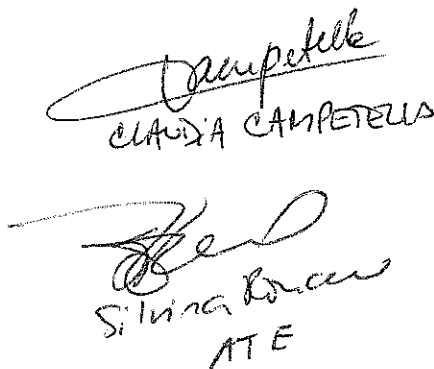 Campetella
CLAUDIA CAMPETELLA
Silvina
ATE